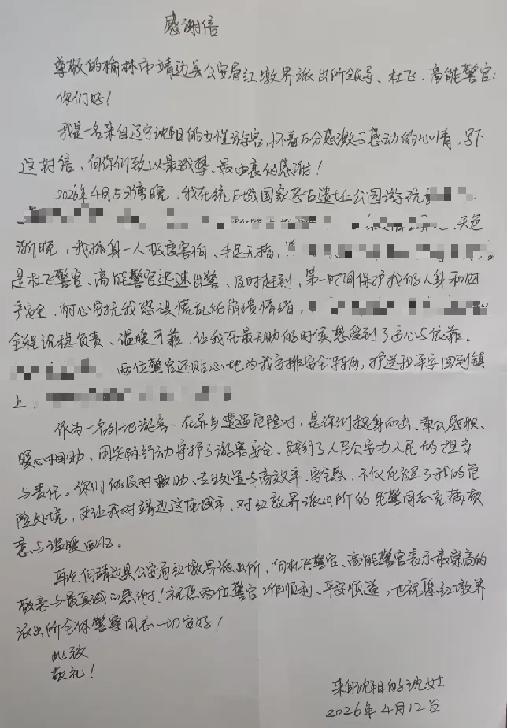 感谢信
尊敬的榆林市靖边县公安局红墩界派出所领导、杜飞、高能警官：
你们好！
我是一名来自辽宁沈阳的女性游客，怀着万分感激与感动的心情，写下
这封信，向你们致以最诚挚、最由衷的感谢！
2026年4月5日傍晚，我在统万城国家考古遗址公园游玩
天色
渐晚，我孤身一人极度害怕、手足无措，
是杜飞警官、高能警官迅速出警、及时赶到，第一时间保护我的人身和财
产安全，耐心安抚我恐惧慌乱的崩溃情绪，
全程认真负责、温暖可靠，让我在最无助的时候感受到了安心与依靠。
两位警官还贴心地为我安排安全转移，护送我平安回到镇
上。
作为一名外地游客，在异乡遭遇危险时，是你们挺身而出、秉公执法、
暖心相助，用实际行动守护了游客安全，践行了人民公安为人民的担当
与责任。你们的及时救助、专业处置与高效率、不仅化解了我的危
险处境，更让我对靖边这座城市、对红墩界派出所的民警同志充满敬
意与温暖回忆。
再次向靖边县公安局红墩界派出所，向杜飞警官、高能警官表示最崇高的
敬意与最真诚的感谢！祝愿两位警官工作顺利、平安顺遂，也祝愿红墩界
派出所全体警察同志一切安好！
此致
敬礼！
来自沈阳的沈女士
2026年4月12日